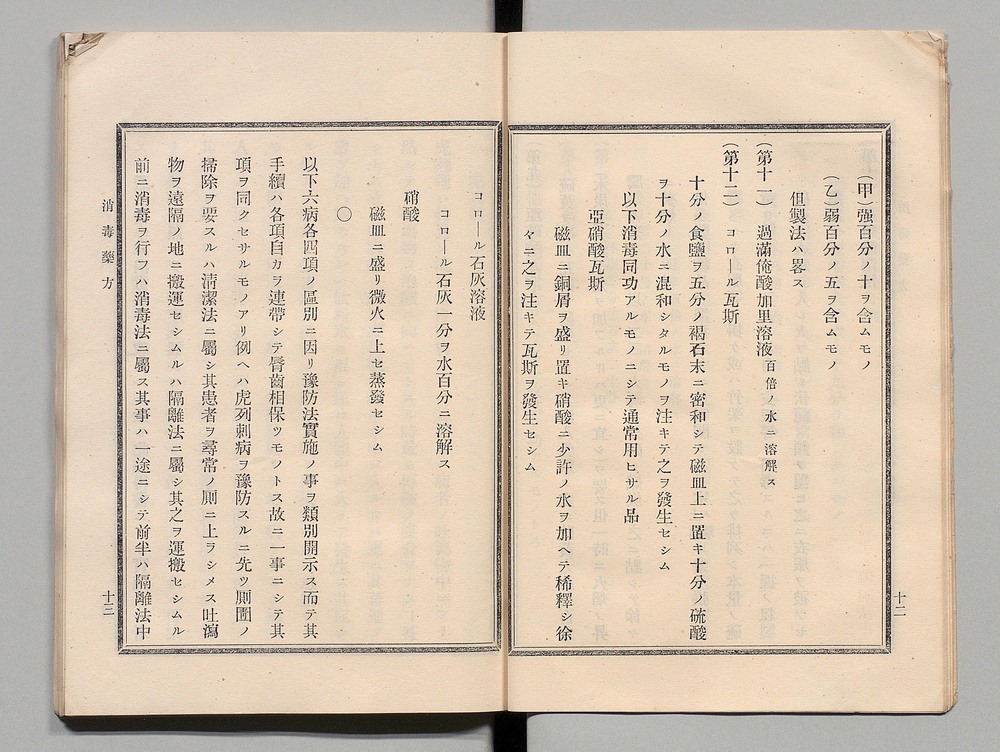 (甲)强百分ノ十ヲ含ムモノ
(乙)弱百分ノ五ヲ含ムモノ
但製法ハ畧ス
(第十一)過滿俺酸加里溶液百倍ノ水ニ溶解ス
(第十二)コロール瓦斯
十分ノ食鹽ヲ五分ノ褐石末ニ密和シテ磁皿上ニ置キ十分ノ硫酸
ヲ十分ノ水ニ混和シタルモノヲ注キテ之ヲ發生セシム
以下消毒同功アルモノニシテ通常用ヒサル品
亞硝酸瓦斯
磁皿ニ銅屑ヲ盛リ置キ硝酸ニ少許ノ水ヲ加ヘテ稀釋シ徐
々ニ之ヲ注キテ瓦斯ヲ發生セシム
十二
コロール石灰溶液
コロール石灰一分ヲ水百分ニ溶解ス
硝酸
磁皿ニ盛リ微火ニ上セ蒸發セシム
○
以下六病各四項ノ區別ニ因リ豫防法實施ノ事ヲ類別開示ス而テ其
手續ハ各項自カラ連帶シテ脣齒相保ツモノトス故ニ一事ニシテ其
項ヲ同クセサルモノアリ例ヘハ虎列刺病ヲ豫防スルニ先ツ厠圊ノ
掃除ヲ要スルハ淸潔法ニ屬シ其患者ヲ尋常ノ厠ニ上ラシメス吐瀉
物ヲ遠隔ノ地ニ搬運セシムルハ隔離法ニ屬シ其之ヲ運搬セシムル
前ニ消毒ヲ行フハ消毒法ニ屬ス其事ハ一途ニシテ前半ハ隔離法中
消毒藥方
十三